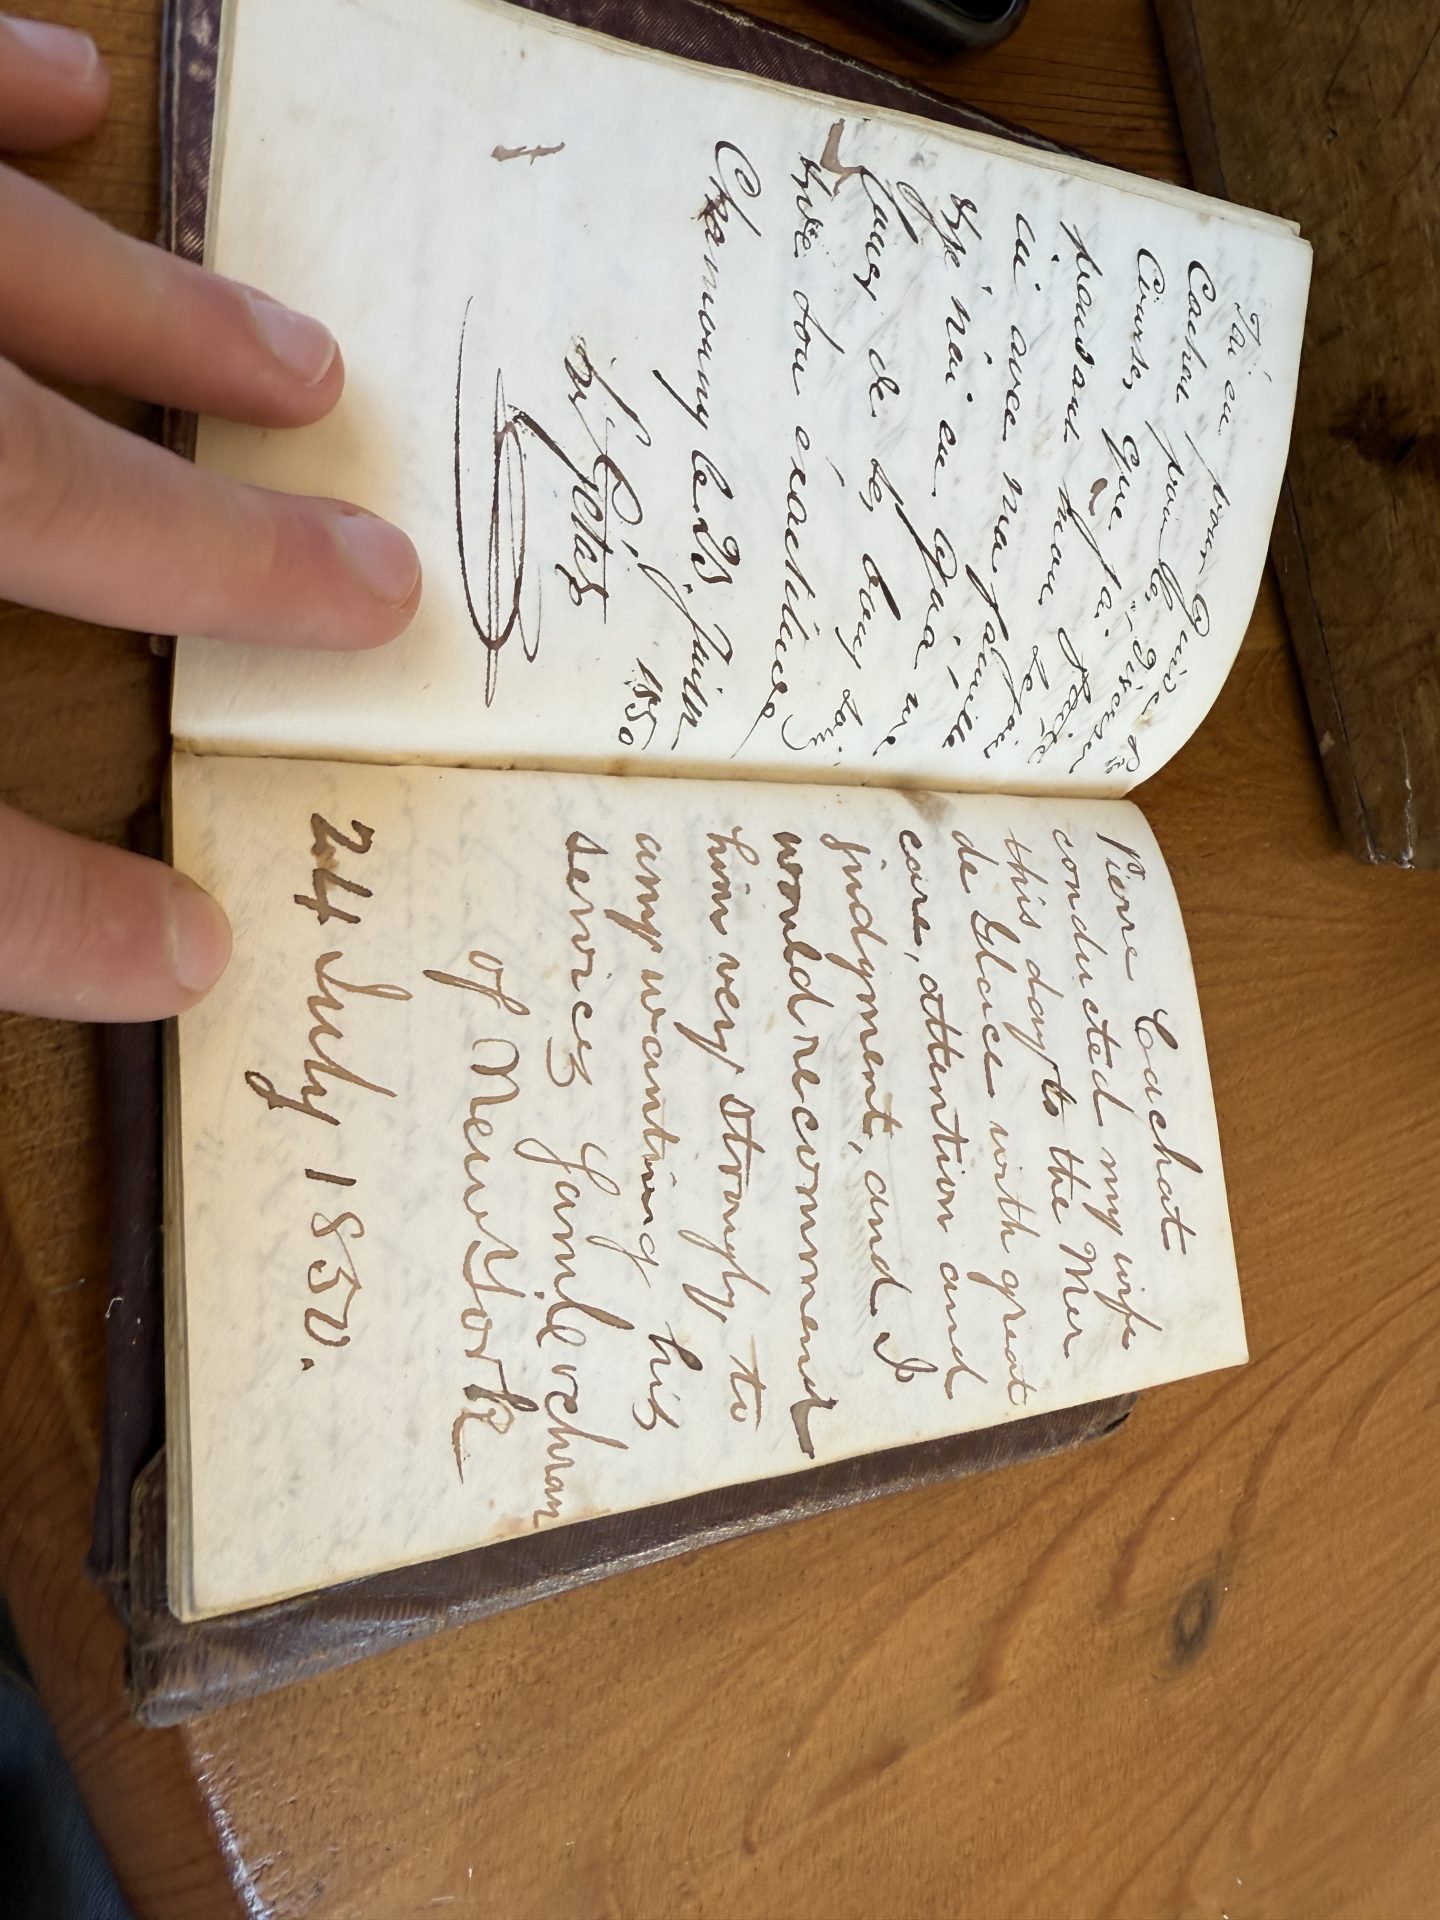 J'ai eu pour Guide P.re
Cachat pour les diverses
Courses que j'ai
pendant mon séjour
ici avec ma famille
Je n'ai eu qu'à me
louer de ses bons soins
et de son exactitude
Chamouny le 25 Juin
1850
Pierre Cachat
conducted my wife
this day to the Mer
de Glace with great
care, attention and
judgment, and I
would recommend
him very strongly to
any wanting his
services
of New York
24 July 1850.